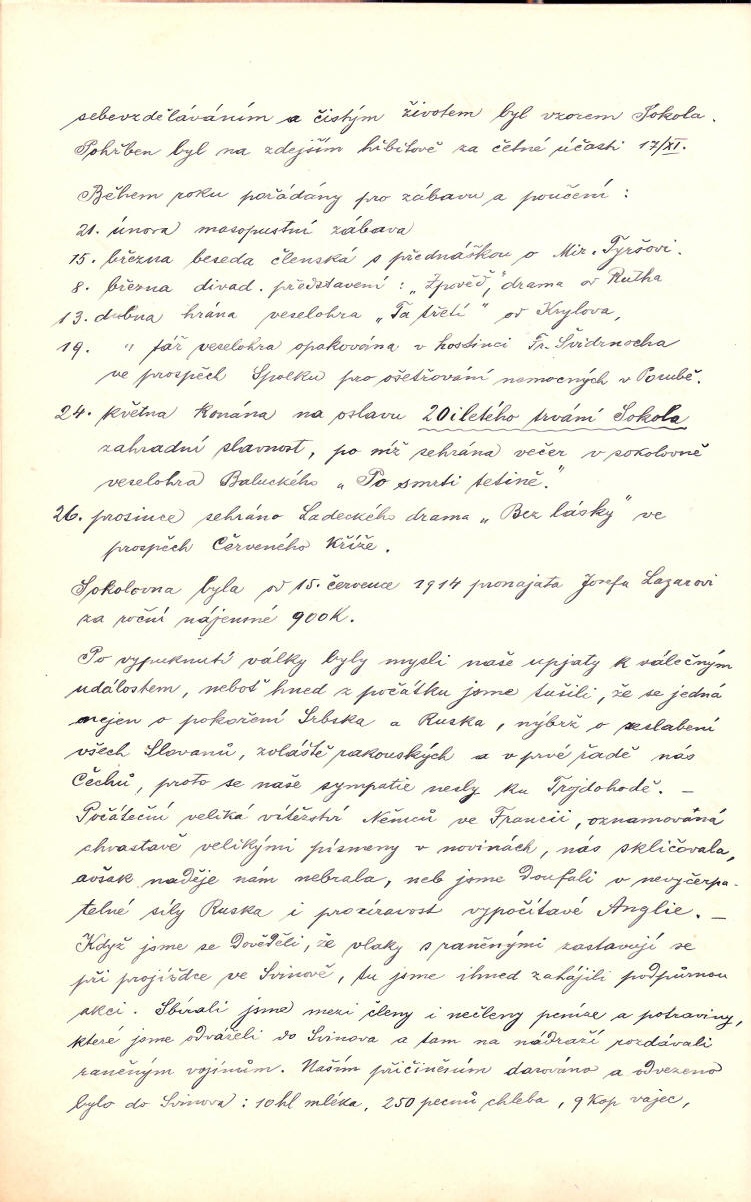 sebevzděláváním a čistým životem byl vzorem Sokola.
Pohřben byl na zdejším hřbitově za četné účasti 17/XI.
Během roku pořádány pro zábavu a poučení:
21. února masopustní zábava
15. března beseda členská s přednáškou o Mir. Tyršovi.
8. března divad. představení: „Zpověď," drama od Rutha
13. dubna hrána veselohra „Ta třetí" od Krylova,
19. " táž veselohra opakována v hostinci Fr. Švidrnocha
ve prospěch Spolku pro ošetřování nemocných v Porubě.
24. května konána na oslavu 20tiletého trvání Sokola
zahradní slavnost, po níž sehrána večer v sokolovně
veselohra Baluckého „Po smrti tetině."
26. prosince sehráno Ladeckého drama „Bez lásky" ve
prospěch Červeného Kříže.
Sokolovna byla od 15. července 1914 pronajata Josefu Lazarovi
za roční nájemné 900K.
Po vypuknutí války byly mysli naše upjaty k válečným
událostem, neboť hned z počátku jsme tušili, že se jedná
nejen o pokoření Srbska a Ruska, nýbrž o seslabení
všech Slovanů, zvláště rakouských a v prvé řadě nás
Čechů, proto se naše sympatie nesly ku Trojdohodě. —
Počáteční veliká vítězství Němců ve Francii, oznamovaná
chvastavě velikými písmeny v novinách, nás skličovala,
avšak naděje nám nebrala, neb jsme doufali v nevyčerpa-
telné síly Ruska i prozíravost vypočítavé Anglie. —
Když jsme se dověděli, že vlaky s raněnými zastavují se
při projížďce ve Svinově, tu jsme ihned zahájili podpůrnou
akci. Sbírali jsme mezi členy i nečleny peníze a potraviny,
které jsme odváželi do Svinova a tam na nádraží rozdávali
raněným vojínům. Naším přičiněním darováno a odvezeno
bylo do Svinova: 10 hl mléka, 250 pecnů chleba, 9 kop vajec,